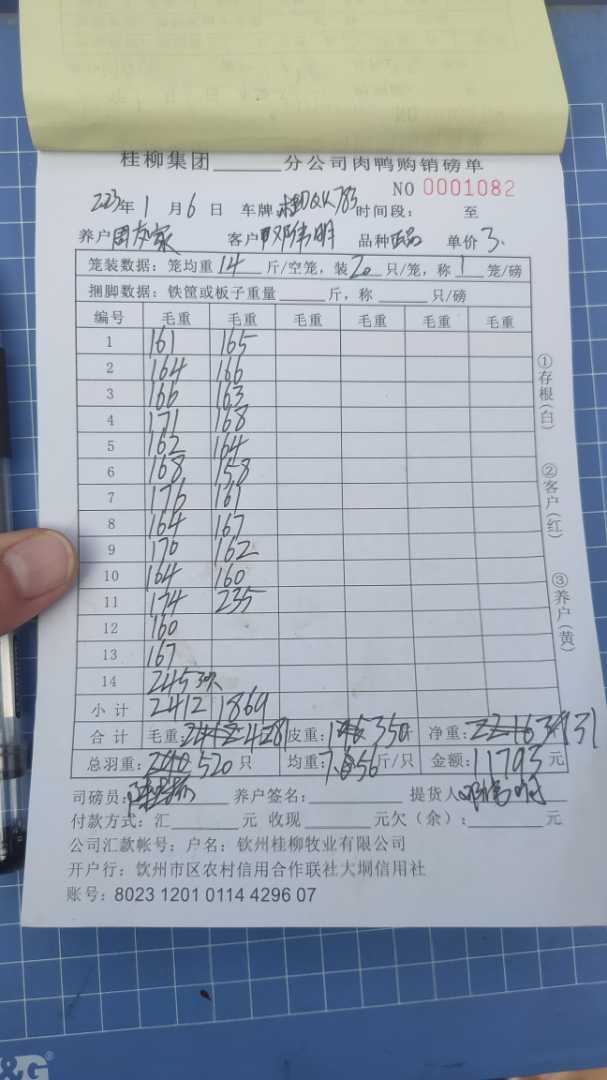 桂柳集团______分公司肉鸭购销磅单
NO 0001082
2023年1月6日 车牌 783 时间段: 至
养户 客户 邓伟明 品种 正品 单价 3.
笼装数据: 笼均重 14 斤/空笼, 装 20 只/笼, 称 1 笼/磅
捆脚数据: 铁筐或板子重量______斤, 称______只/磅
编号 毛重 毛重 毛重 毛重 毛重 毛重
1 161 165
2 164 166
3 166 163
4 171 168
5 162 164
6 168 158
7 176 161
8 164 167
9 170 162
10 164 160
11 174 235
12 160
13 167
14 245
小计 2412 1869
合计 毛重: 4281 皮重: 350 净重: 3931
总羽重: 520 只 均重: 7.56 斤/只 金额: 11793 元
司磅员: 养户签名: 提货人 邓伟明
付款方式: 汇______元 收现______元欠(余):______元
公司汇款帐号: 户名: 钦州桂柳牧业有限公司
开户行: 钦州市区农村信用合作联社大垌信用社
账号: 8023 1201 0114 4296 07
①存根(白)
②客户(红)
③养户(黄)
&G